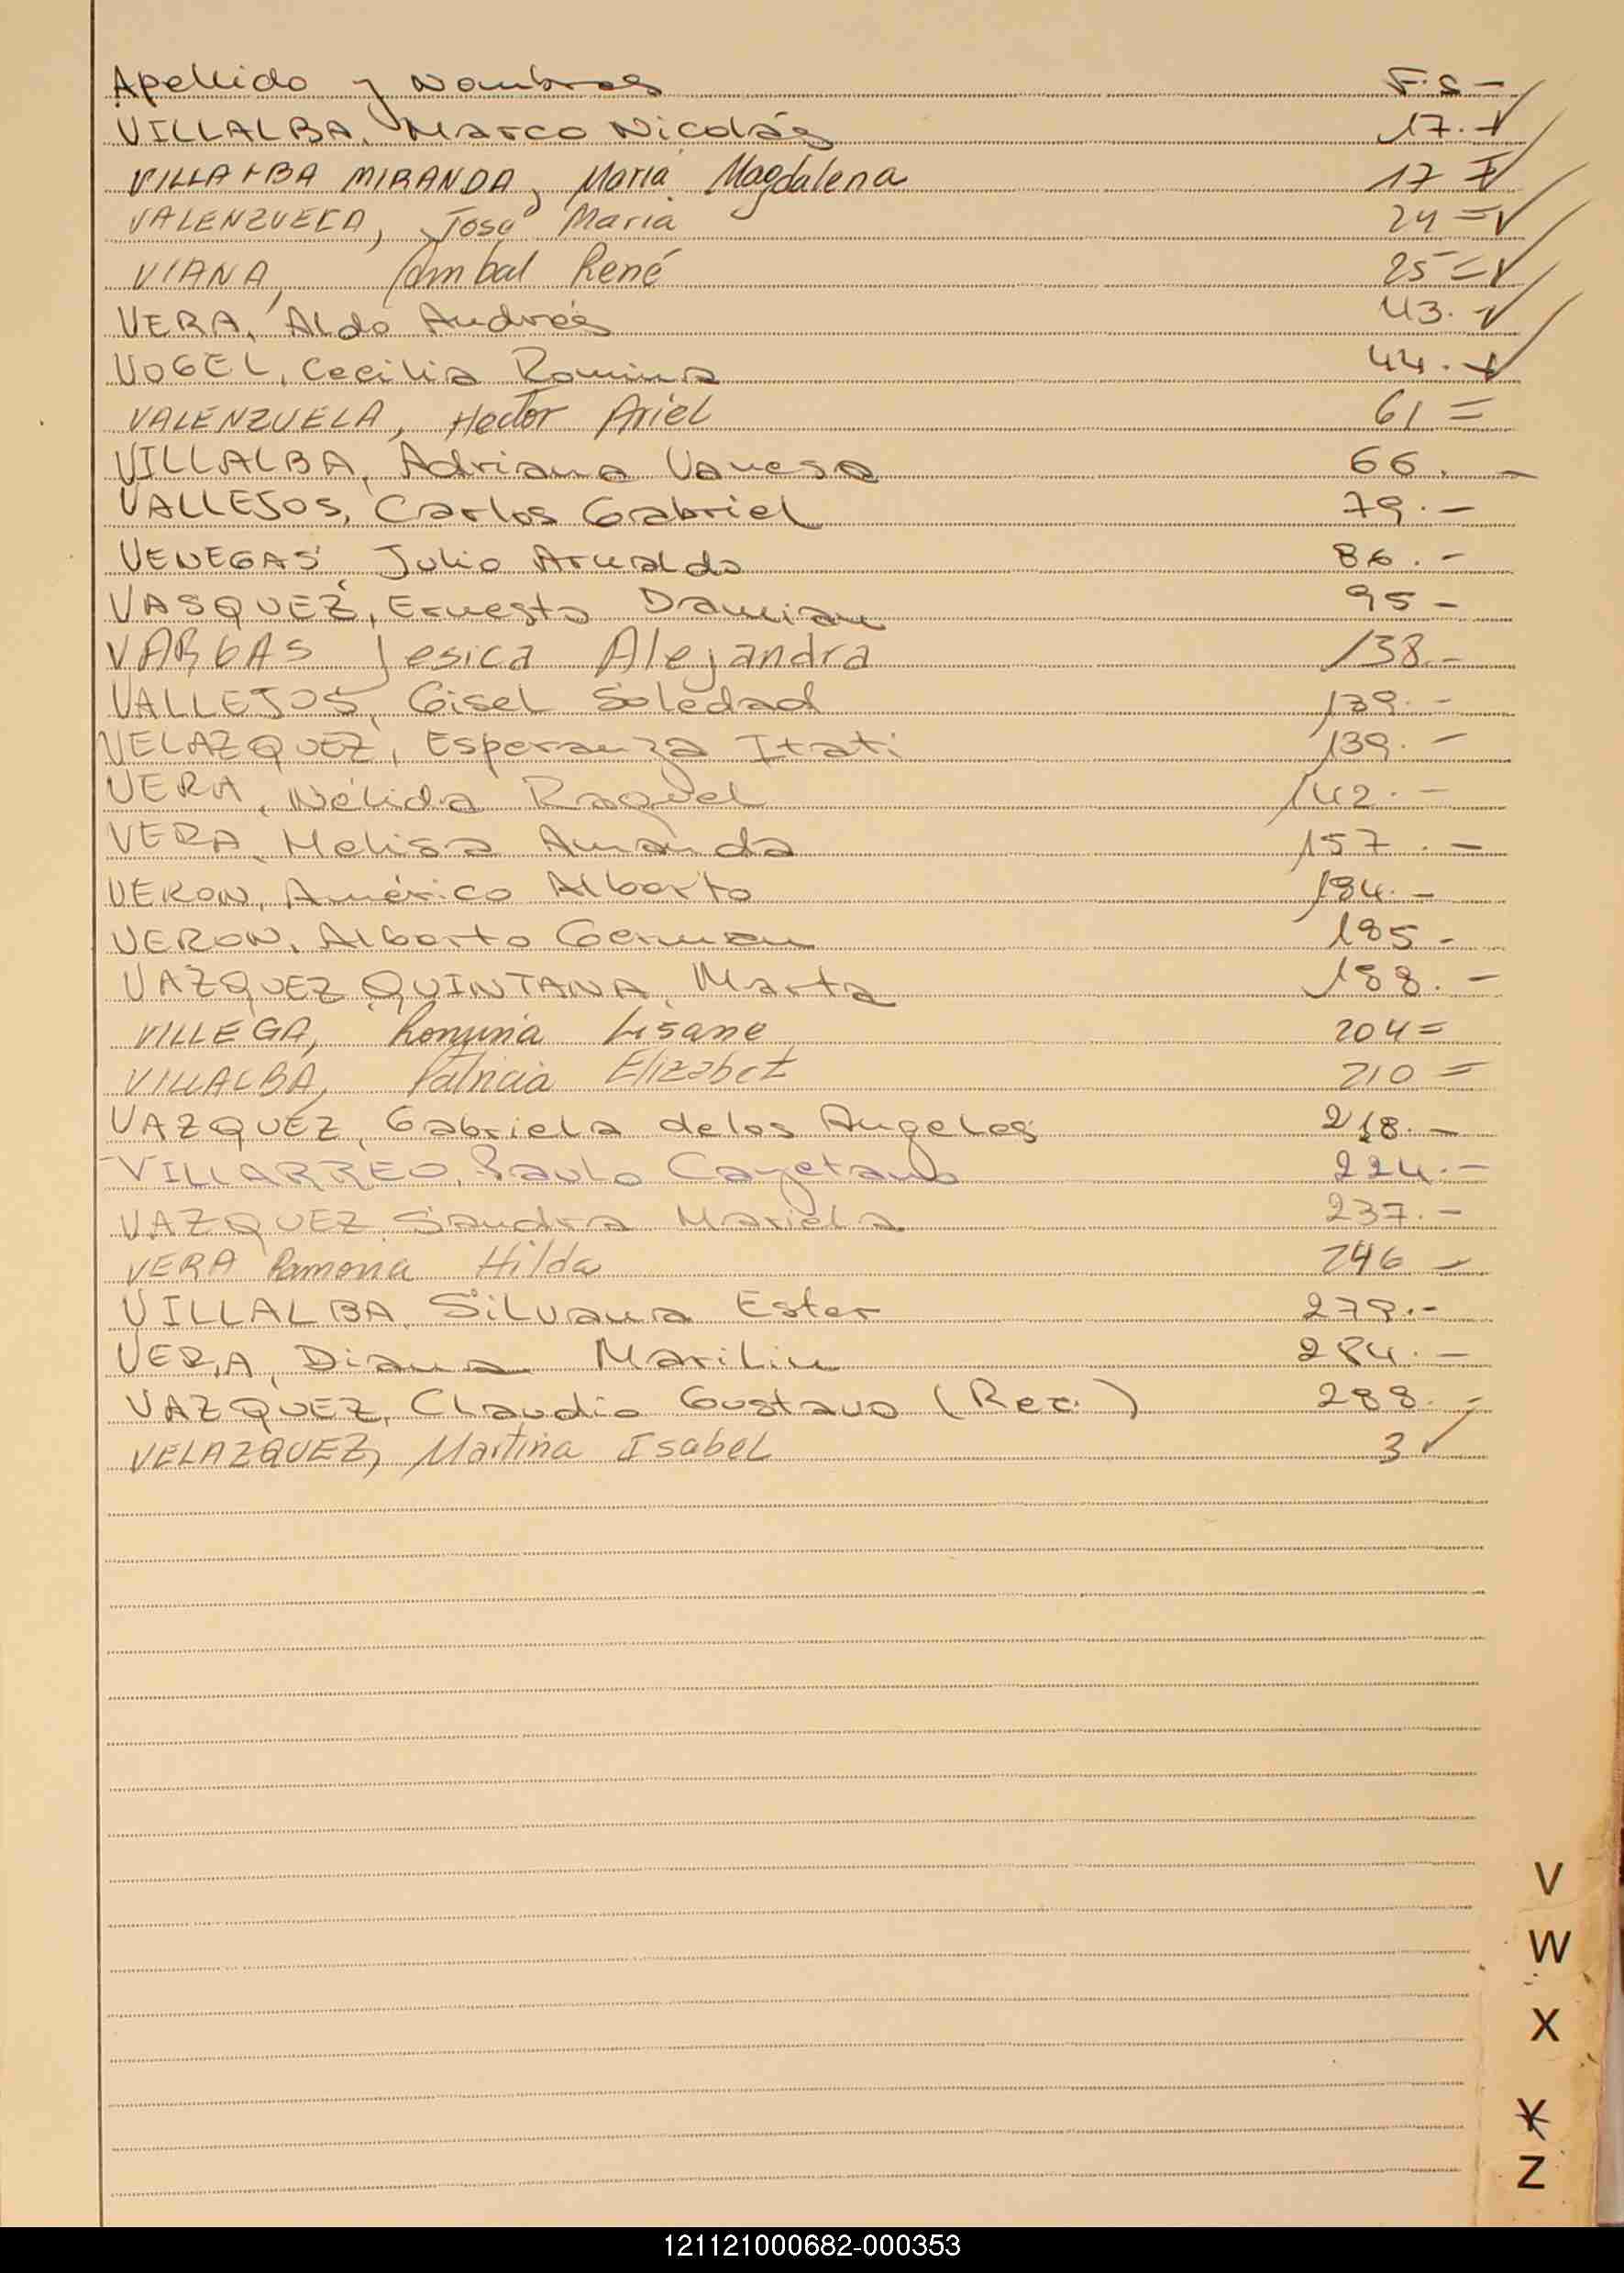 Apellido y Nombres F.S -
VILLALBA, Marco Nicolás 17.-
VILLALBA MIRANDA, María Magdalena 17 =
VALENZUELA, José María 24 =
VIANA, Anibal René 25 =
VERA, Aldo Andrés 43.-
VOGEL, Cecilia Romina 44.-
VALENZUELA, Hector Ariel 61 =
VILLALBA, Adriana Vanesa 66.-
VALLEJOS, Carlos Gabriel 79.-
VENEGAS, Julio Arnaldo 86.-
VASQUEZ, Ernesto Damian 95-
VARGAS Jesica Alejandra 138.-
VALLEJOS, Gisel Soledad 139.-
VELAZQUEZ, Esperanza Itati 139.-
VERA, Nélida Raquel 142.-
VERA, Melisa Amanda 157.-
VERON, Américo Alberto 184.-
VERON, Alberto German 185-
VAZQUEZ QUINTANA, Marta 188.-
VILLEGA, Romina Lisane 204=
VILLALBA, Patricia Elizabet 210 =
VAZQUEZ, Gabriela delos Angeles 218.-
VILLARREO, Paulo Cayetano 224.-
VAZQUEZ, Sandra Mariela 237.-
VERA Ramona Hilda 246 -
VILLALBA, Silvana Ester 279.-
VERA, Diana Marilin 284.-
VAZQUEZ, Claudio Gustavo (Rec.) 288.-
VELAZQUEZ, Martina Isabel 3
V
W
X
Y
Z
121121000682-000353